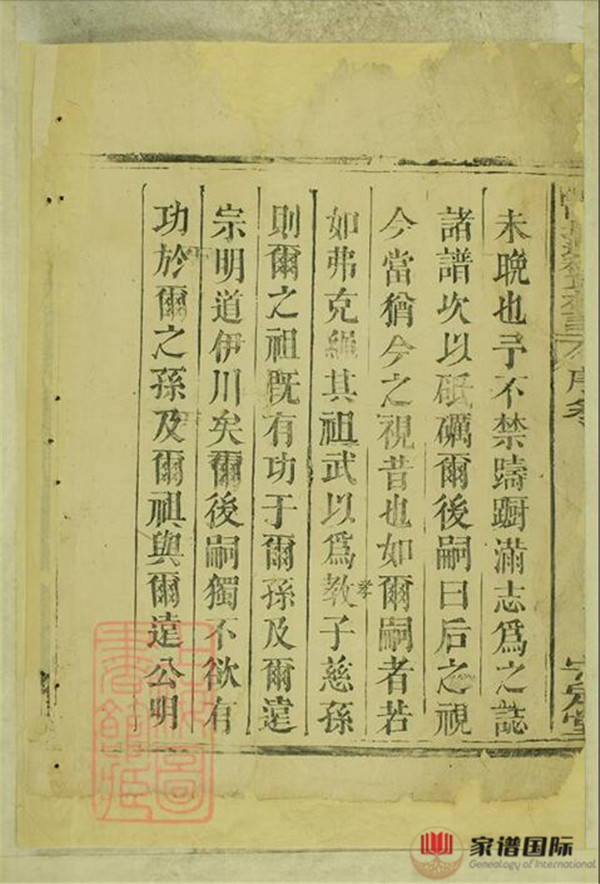 未晩也予不禁躊躕滿志爲之誌
諸譜次以砥礪爾後嗣曰后之視
今當猶今之視昔也如爾嗣者若
如弗克繩其祖武以爲教孝子慈孫
則爾之祖旣有功于爾孫及爾遠
宗明道伊川矣爾後嗣獨不欲有
功於爾之孫及爾祖與爾遠公明
序
家谱国际
Genealogy of International